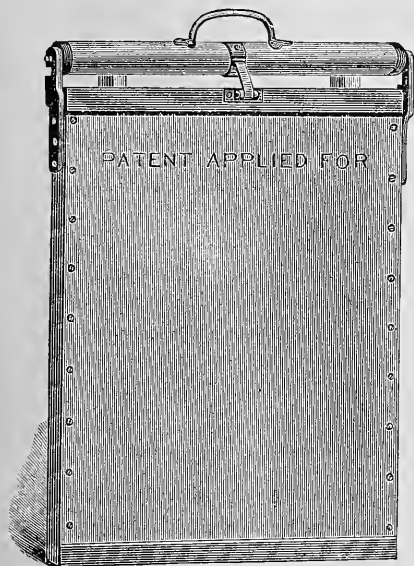 PATENT APPLIED FOR